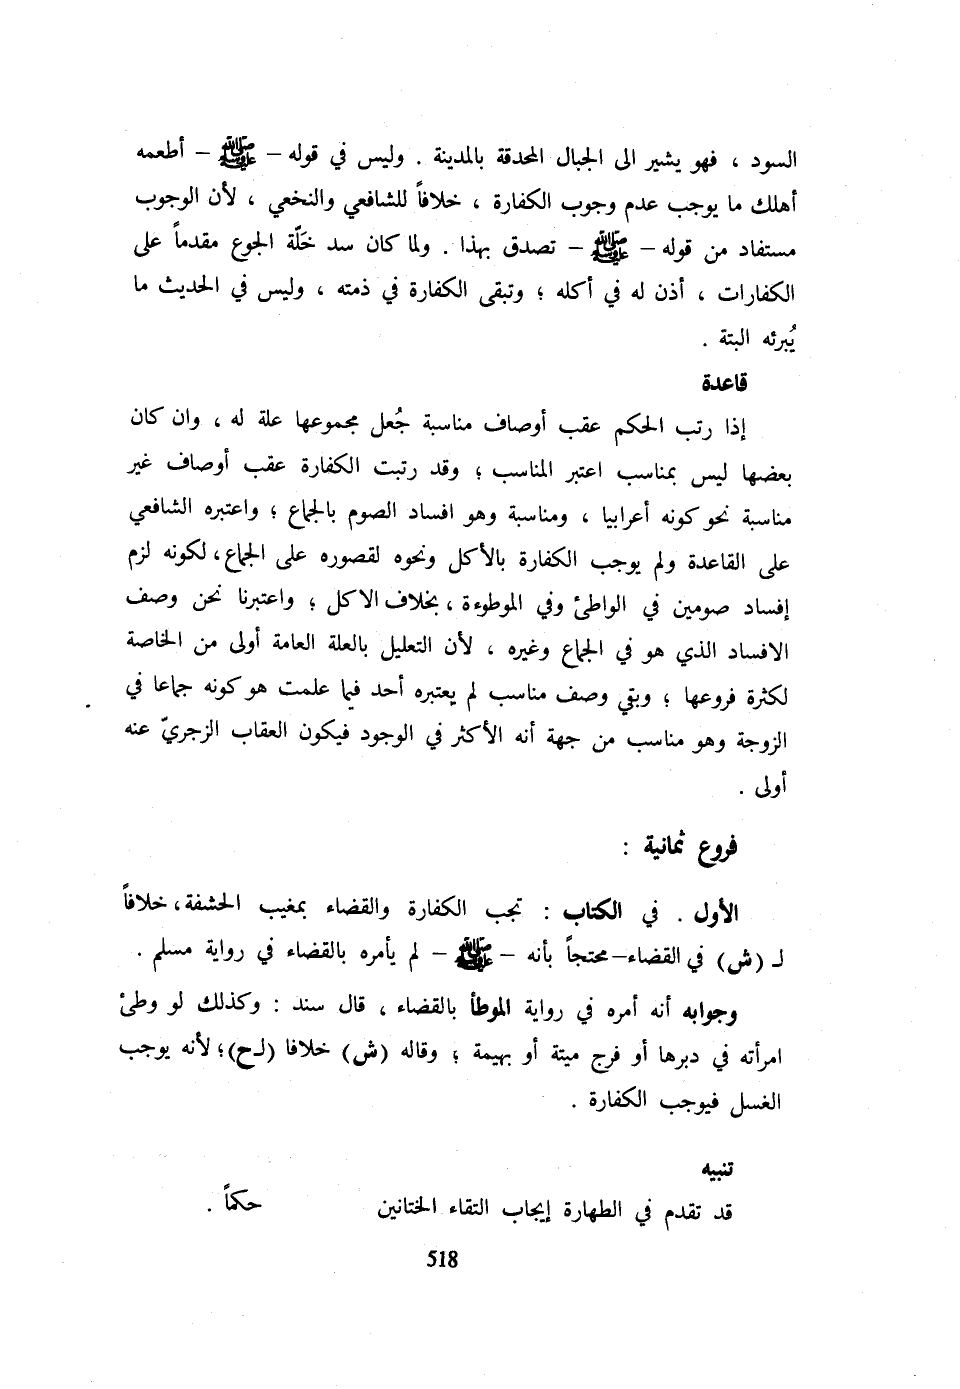 السود ، فهو يشير الى الجبال المحدقة بالمدينة . وليس في قوله – ﷺ – أطعمه
أهلك ما يوجب عدم وجوب الكفارة ، خلافاً للشافعي والنخعي ، لأن الوجوب
مستفاد من قوله – ﷺ – تصدق بهذا . ولما كان سد خلّة الجوع مقدماً على
الكفارات ، أذن له في أكله ؛ وتبقى الكفارة في ذمته ، وليس في الحديث ما
يُبرئه البتة .
قاعدة
إذا رتب الحكم عقب أوصاف مناسبة جُعل مجموعها علة له ، وان كان
بعضها ليس بمناسب اعتبر المناسب ؛ وقد رتبت الكفارة عقب أوصاف غير
مناسبة نحو كونه أعرابيا ، ومناسبة وهو افساد الصوم بالجماع ؛ واعتبره الشافعي
على القاعدة ولم يوجب الكفارة بالأكل ونحوه لقصوره على الجماع ، لكونه لزم
إفساد صومين في الواطئ وفي الموطوءة ، بخلاف الاكل ؛ واعتبرنا نحن وصف
الافساد الذي هو في الجماع وغيره ، لأن التعليل بالعلة العامة أولى من الخاصة
لكثرة فروعها ؛ وبقي وصف مناسب لم يعتبره أحد فيما علمت هو كونه جماعا في
الزوجة وهو مناسب من جهة أنه الأكثر في الوجود فيكون العقاب الزجريّ عنه
أولى .
فروع ثمانية :
الأول . في الكتاب : تجب الكفارة والقضاء بمغيب الحشفة ، خلافاً
لـ (ش) في القضاء – محتجاً بأنه – ﷺ – لم يأمره بالقضاء في رواية مسلم .
وجوابه أنه أمره في رواية الموطأ بالقضاء ، قال سند : وكذلك لو وطئ
امرأته في دبرها أو فرج ميتة أو بهيمة ؛ وقاله (ش) خلافا (لـ ح) ؛ لأنه يوجب
الغسل فيوجب الكفارة .
تنبيه
قد تقدم في الطهارة إيجاب التقاء الختانين حكماً .
518